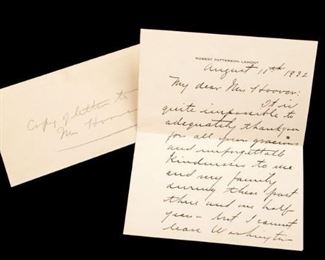 Copy of letter to
Mrs Hoover
ROBERT PATTERSON LAMONT
August 11th 1932
My dear Mrs Hoover:
It is
quite impossible to
adequately thank you
for all your gracious
and unforgettable
kindnesses to me
and my family
during these past
three and one half
years - but I cannot
leave Washington